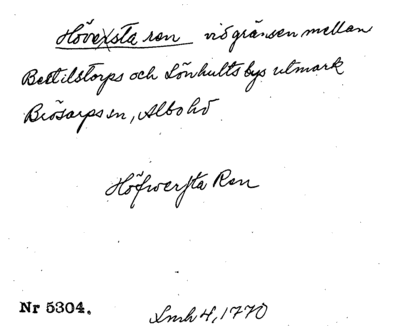 Hövexsta ren vid gränsen mellan
Bertilstorps och Lönhults bys utmark
Brösarps sn, Albo hd
Höfwersta Ren
Nr 5304.
Lmh 4, 1770